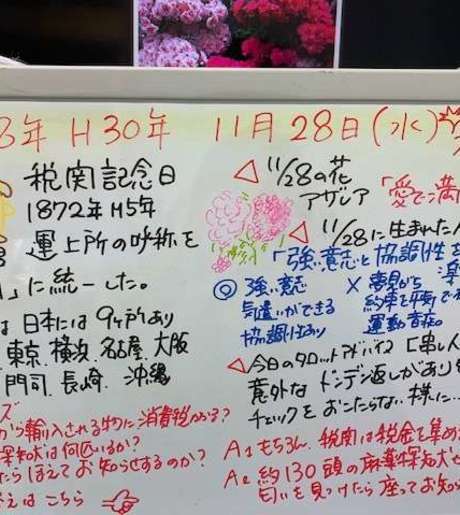 8年 H30年 11月28日(水)
税関記念日
1872年 H5年
運上所の呼称を
」に統一した。
は 日本には 9ヶ所あり
東京、横浜、名古屋、大阪
門司、長崎、沖縄
ズ
から輸入される物に消費税かかる?
探知犬は何匹いるか?
たらほえてお知らせするのか?
えは こちら
11/28の花
アザレア 「愛で満
11/28に生まれた人
「強い意志と協調性を
◎ 強い意志
気遣いができる
協調性あり
× 夢見がち
約束を平気で
運動音痴。
今日のタロットアドバイス [吊し人
意外な ドンデン返しがあり
チェックをおこたらない様に…
A1 もちろん、税関は税金を集め
A2 約130頭の麻薬探知犬
匂いを見つけたら座ってお知ら